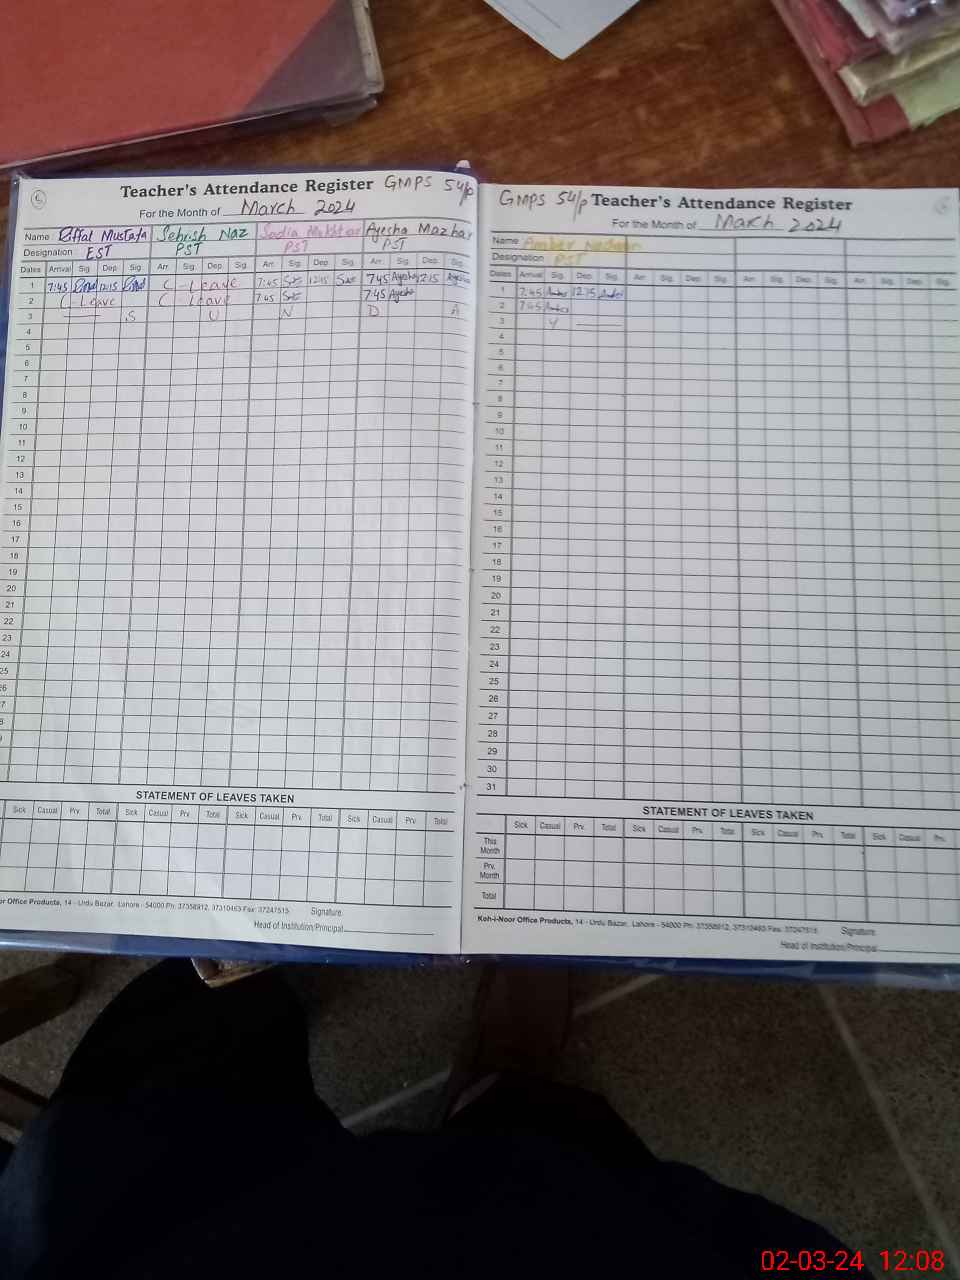 Teacher's Attendance Register GMPS 54/p
For the Month of March 2024
Name Riffat Mustafa Sehrish Naz Sadia Mukhtar Ayesha Mazhar
Designation EST PST PST PST
Dates Arrival Sig. Dep. Sig. Arr. Sig. Dep. Sig. Arr. Sig. Dep. Sig. Arr. Sig. Dep. Sig.
1 7:45 12:15 C - Leave 7:45 12:15 7:45 Ayesha 12:15 Ayesha
2 C - Leave C - Leave 7:45 7:45 Ayesha
3 S U N D A
4
5
6
7
8
9
10
11
12
13
14
15
16
17
18
19
20
21
22
23
24
25
26
27
28
29
STATEMENT OF LEAVES TAKEN
Sick Casual Prv. Total Sick Casual Prv. Total Sick Casual Prv. Total Sick Casual Prv. Total
or Office Products, 14 - Urdu Bazar, Lahore - 54000 Ph: 37358912, 37310463 Fax: 37247515
Signature
Head of Institution/Principal
GMPS 54/p Teacher's Attendance Register
For the Month of March 2024
Name Amber
Designation PST
Dates Arrival Sig. Dep. Sig. Arr. Sig. Dep. Sig. Arr. Sig. Dep. Sig. Arr. Sig. Dep. Sig.
1 7:45 Amber 12:15 Amber
2 7:45 Amber
3 Y
4
5
6
7
8
9
10
11
12
13
14
15
16
17
18
19
20
21
22
23
24
25
26
27
28
29
30
31
STATEMENT OF LEAVES TAKEN
Sick Casual Prv. Total Sick Casual Prv. Total Sick Casual Prv. Total Sick Casual Prv.
This Month
Prv. Month
Total
Koh-i-Noor Office Products, 14 - Urdu Bazar, Lahore - 54000 Ph: 37358912, 37310463 Fax: 37247515
Signature
Head of Institution/Principal
02-03-24 12:08